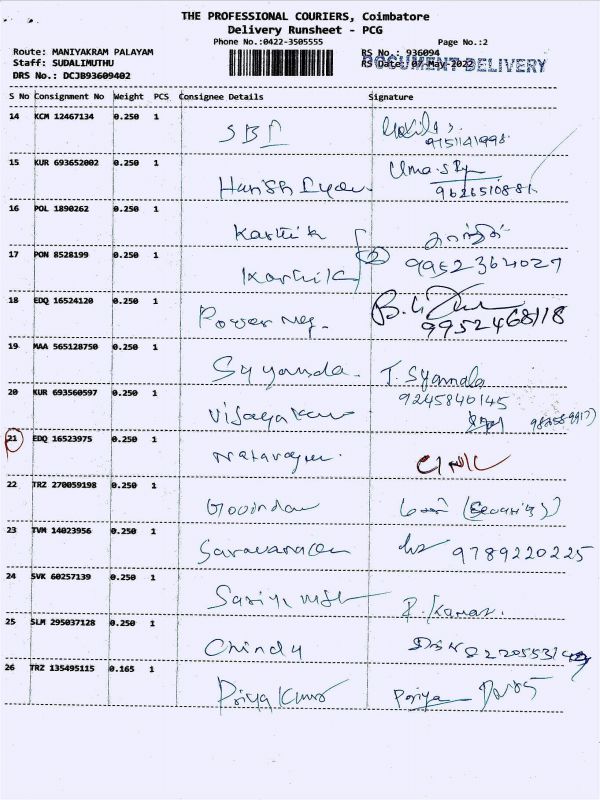 THE PROFESSIONAL COURIERS, Coimbatore
Delivery Runsheet - PCG
Phone No.:0422-3505555 Page No.:2
Route: MANIYAKRAM PALAYAM RS No.: 936094
Staff: SUDALIMUTHU RS Date: 07-May-2022 DOCUMENT DELIVERY
DRS No.: DCJB93609402
S No Consignment No Weight PCS Consignee Details Signature
14 KCM 12467134 0.250 1
SBI
9751141998
15 KUR 693652002 0.250 1 Uma.s
Harish 9626510881
16 POL 1890262 0.250 1
Karthik
17 PON 8528199 0.250 1 2 9952364027
Karthik
18 EDQ 16524120 0.250 1
9952468118
19 MAA 565128750 0.250 1
Syyamda. T. Syamala
20 KUR 693560597 0.250 1 9245840145
Vijayakumar
21 EDQ 16523975 0.250 1
22 TRZ 270059198 0.250 1
Govindan (Security)
23 TVM 14023956 0.250 1
Saravanan 9789220225
24 SVK 60257139 0.250 1
R. Kumar.
25 SLM 295037128 0.250 1
Chindu
26 TRZ 135495115 0.165 1
Priya Kumar Poriya